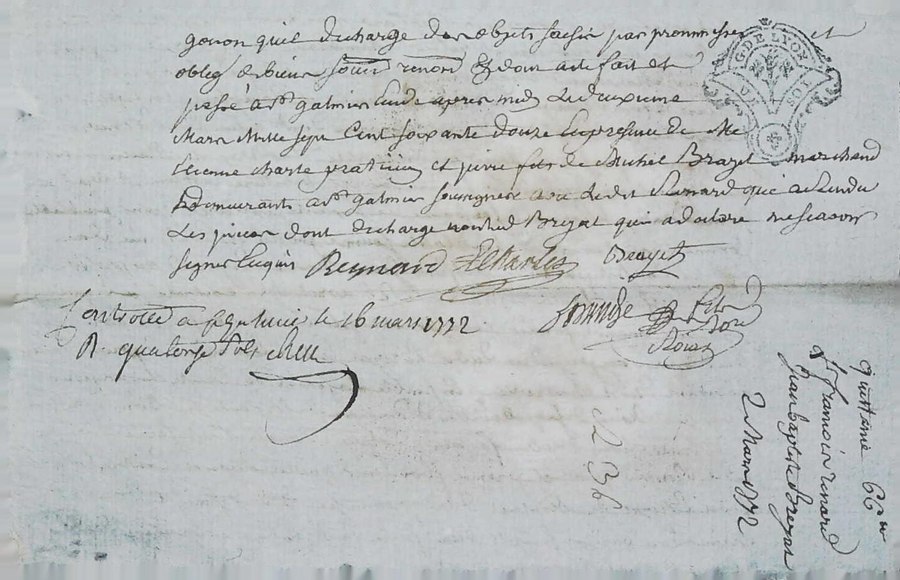 gonon qu'il decharge des objets saisis par promesse et
oblig de biens soum renon & dont acte fait et
passé a St galmier Etude apres midi Le deuxieme
Mars Mille Sept Cent soixante douze En presence de Me
Etienne charle praticien et pierre fils de Michel Brazet marchand
Demeurants a St galmier soussignés avec Ledit Renard qui a Rendu
Les pieces dont decharge Ledit Breyat qui a declaré ne scavoir
signer Enquis Reynard E Charles Brazet
Controllé a St galmier le 16 mars 1772
R quatorze sols
G. DE LYON
SOL
quittance 66
françois renard
jean baptiste Breyat
2 Mars 1772
236